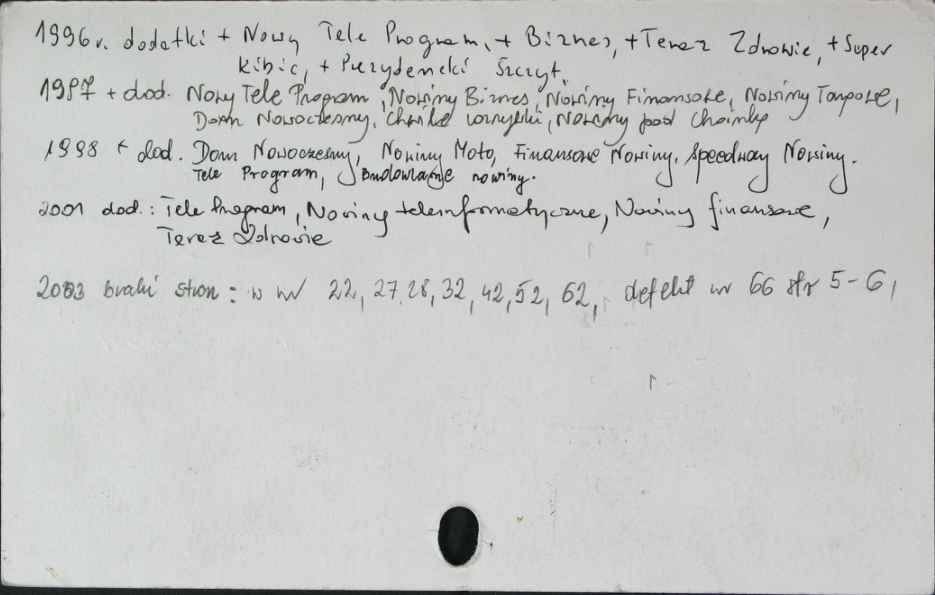 1996 r. dodatki + Nowy Tele Program, + Biznes, + Teraz Zdrowie, + Super
Kibic, + Prezydencki Szczyt.
1997 + dod. Nowy Tele Program, Nowiny Biznes, Nowiny Finansowe, Nowiny Targowe,
Dom Nowoczesny, Chwila rozrywki, Nowiny pod choinkę
1998 + dod. Dom Nowoczesny, Nowiny Moto, Finansowe Nowiny, Speedway Nowiny.
Tele Program, Budowlane nowiny.
2001 dod.: Tele Program, Nowiny teleinformatyczne, Nowiny finansowe,
Teraz Zdrowie
2003 braki stron: w nr 22, 27, 28, 32, 42, 52, 62, defekt nr 66 str 5-6,